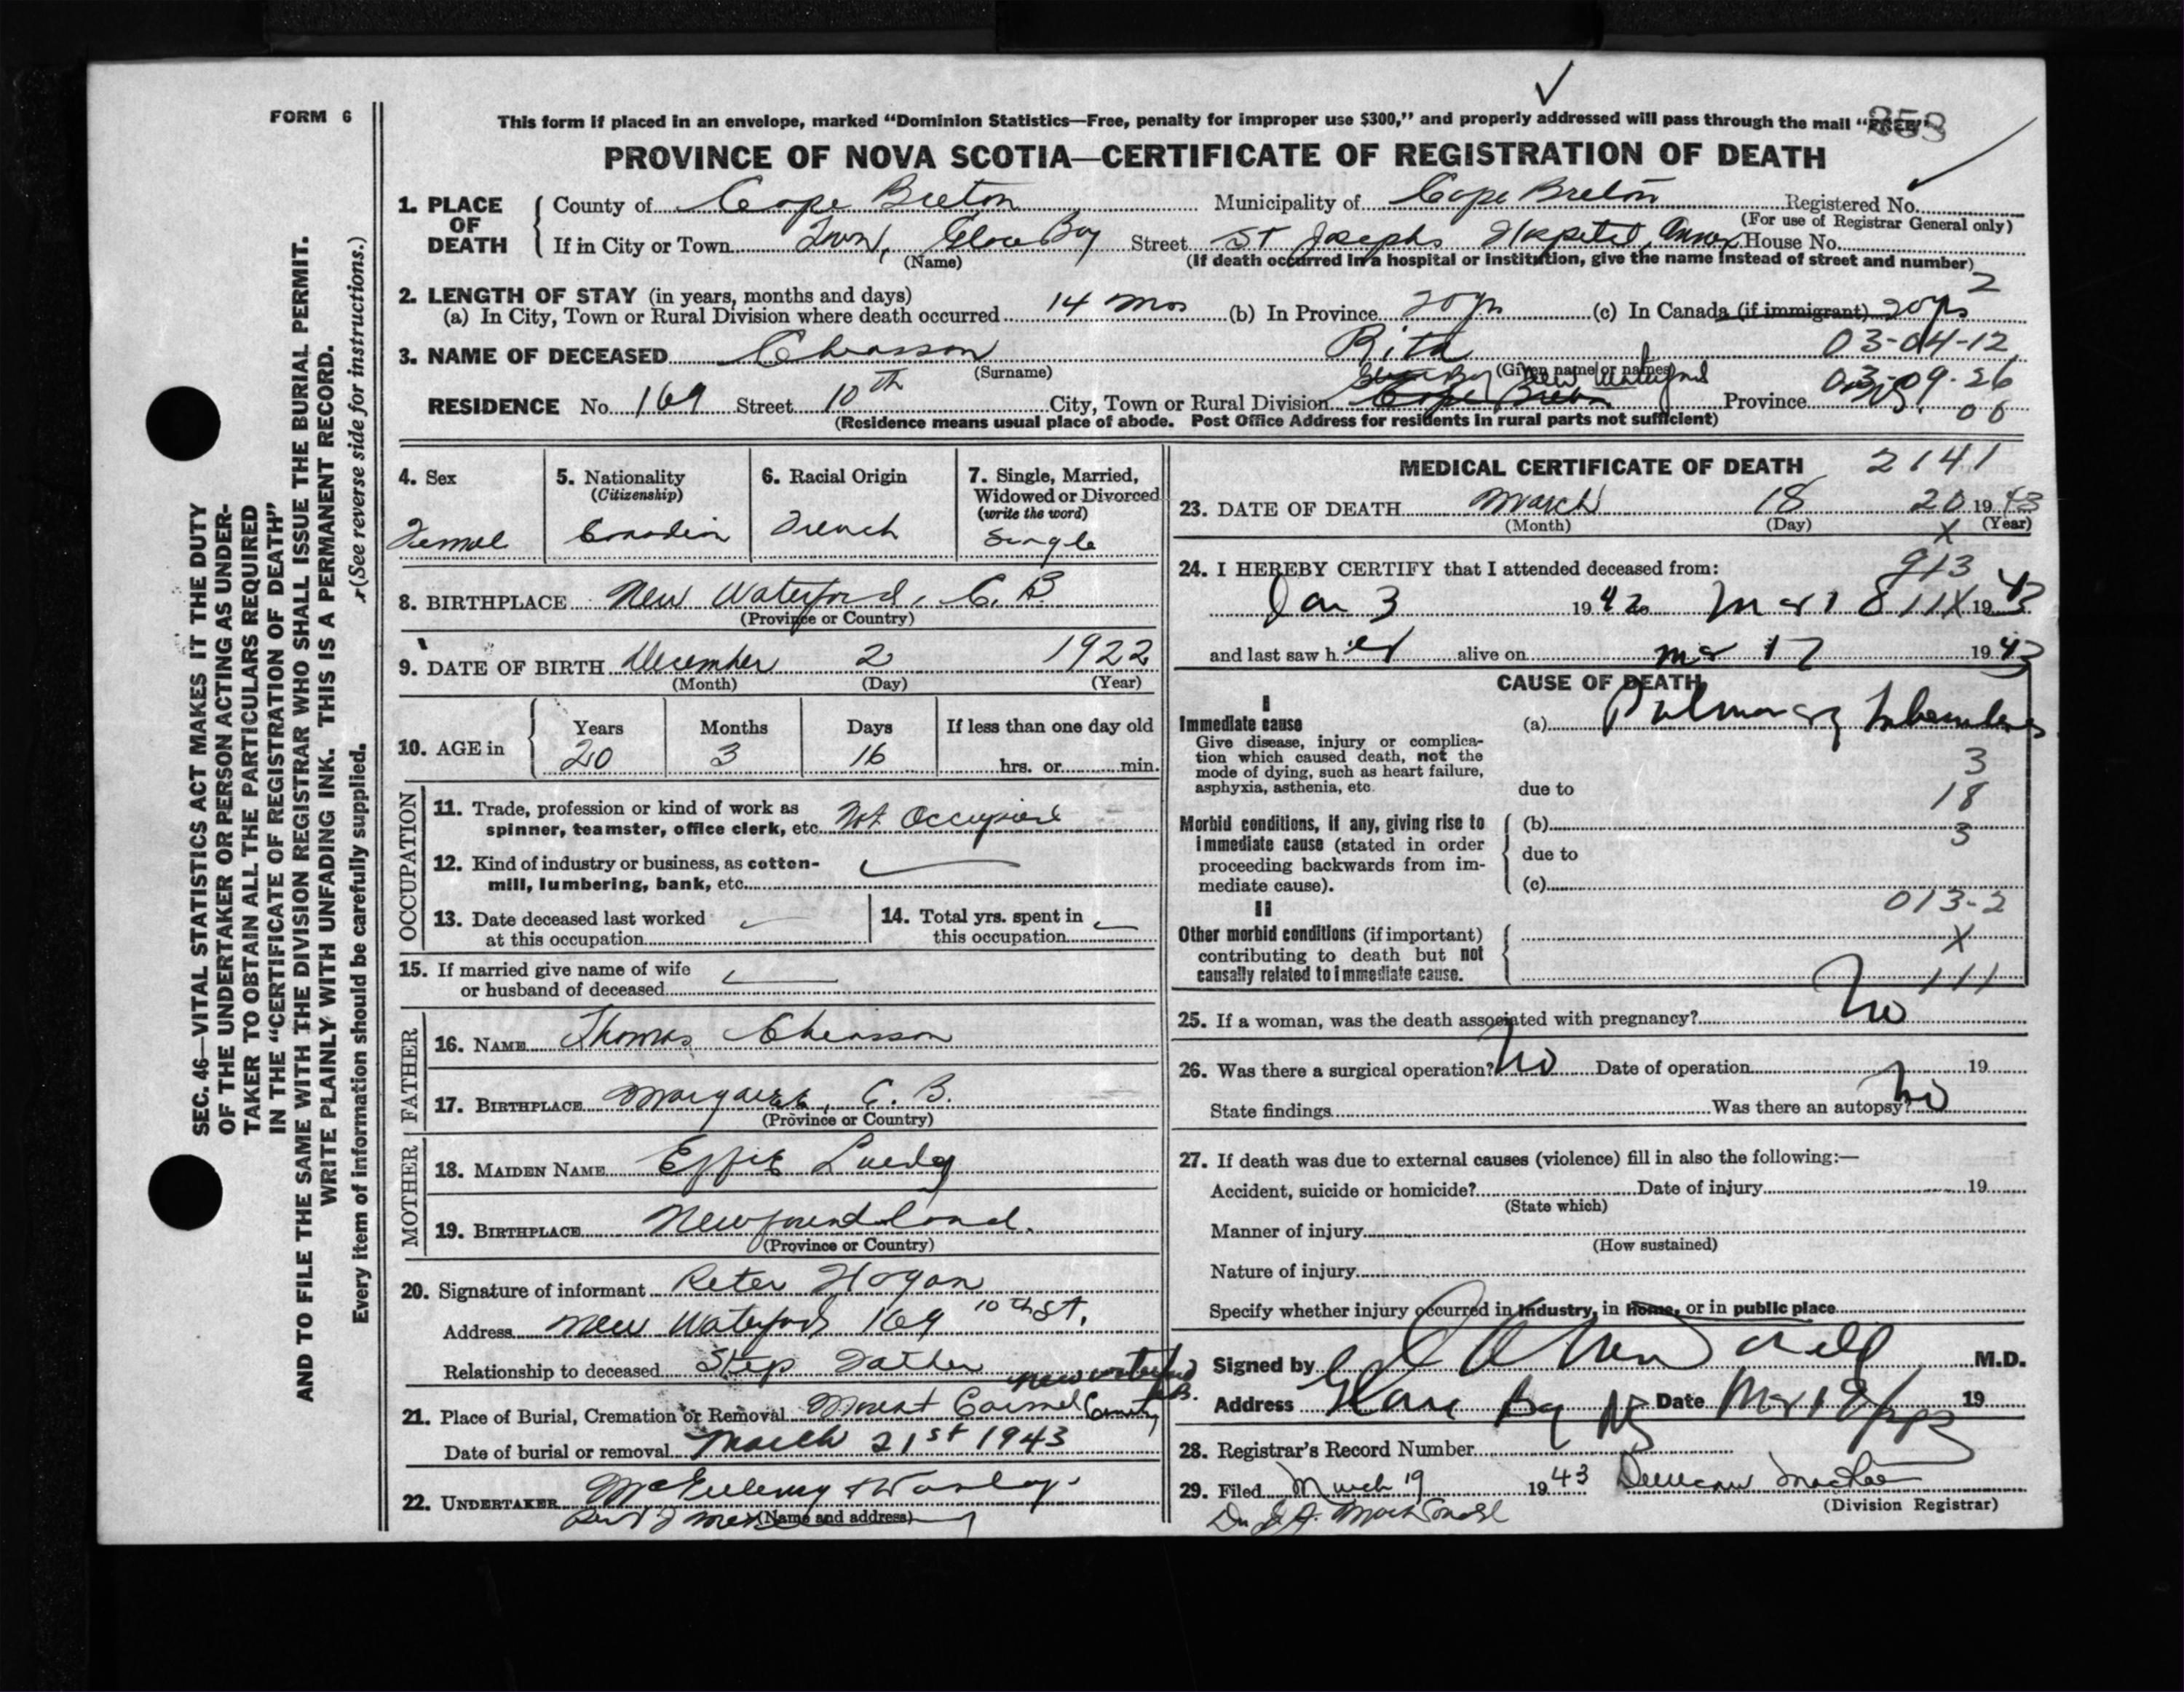 FORM 6
SEC. 46—VITAL STATISTICS ACT MAKES IT THE DUTY
OF THE UNDERTAKER OR PERSON ACTING AS UNDER-
TAKER TO OBTAIN ALL THE PARTICULARS REQUIRED
IN THE "CERTIFICATE OF REGISTRATION OF DEATH"
AND TO FILE THE SAME WITH THE DIVISION REGISTRAR WHO SHALL ISSUE THE BURIAL PERMIT.
WRITE PLAINLY WITH UNFADING INK. THIS IS A PERMANENT RECORD.
Every item of information should be carefully supplied. (See reverse side for instructions.)
This form if placed in an envelope, marked "Dominion Statistics—Free, penalty for improper use $300," and properly addressed will pass through the mail "FREE"
358
PROVINCE OF NOVA SCOTIA—CERTIFICATE OF REGISTRATION OF DEATH
1. PLACE OF DEATH
County of Cape Breton Municipality of Cape Breton Registered No.
(For use of Registrar General only)
If in City or Town Town, Glace Bay Street St Josephs Hospital, Annex House No.
(Name) (If death occurred in a hospital or institution, give the name instead of street and number)
2
2. LENGTH OF STAY (in years, months and days)
(a) In City, Town or Rural Division where death occurred 14 mos (b) In Province 20 yrs (c) In Canada (if immigrant) 20 yrs
3. NAME OF DECEASED Cheasson Rita 03-04-12
(Surname) (Given name or names)
New Waterford 03-09-26
RESIDENCE No. 169 Street 10th City, Town or Rural Division Cape Breton Province N.S. 06
(Residence means usual place of abode. Post Office Address for residents in rural parts not sufficient)
4. Sex
Femel
5. Nationality
(Citizenship)
Canadin
6. Racial Origin
French
7. Single, Married,
Widowed or Divorced
(write the word)
Single
8. BIRTHPLACE New Waterford, C. B.
(Province or Country)
9. DATE OF BIRTH December 2 1922
(Month) (Day) (Year)
10. AGE in Years Months Days If less than one day old
20 3 16 hrs. or min.
OCCUPATION
11. Trade, profession or kind of work as
spinner, teamster, office clerk, etc. Not Occupied
12. Kind of industry or business, as cotton-
mill, lumbering, bank, etc.
13. Date deceased last worked
at this occupation
14. Total yrs. spent in
this occupation
15. If married give name of wife
or husband of deceased
FATHER
16. NAME Thomas Cheasson
17. BIRTHPLACE Margaree, C. B.
(Province or Country)
MOTHER
18. MAIDEN NAME Effie
19. BIRTHPLACE Newfoundland.
(Province or Country)
20. Signature of informant Peter Hogan
Address New Waterford 169 10th St.
Relationship to deceased Step Father
New Waterford
C.B.
21. Place of Burial, Cremation or Removal Mount Carmel
Date of burial or removal March 21st 1943
22. UNDERTAKER
(Name and address)
MEDICAL CERTIFICATE OF DEATH 2141
23. DATE OF DEATH March 18 20 1943
(Month) (Day) X (Year)
24. I HEREBY CERTIFY that I attended deceased from: 913
Jan 3 1942 Mar 18 11X 1943
and last saw her alive on Mar 17 1943
CAUSE OF DEATH
I
Immediate cause (a) Pulmonary Tuberculosis
Give disease, injury or complica-
tion which caused death, not the
mode of dying, such as heart failure,
asphyxia, asthenia, etc.
3
due to 18
Morbid conditions, if any, giving rise to
immediate cause (stated in order
proceeding backwards from im-
mediate cause).
(b) 3
due to
(c)
013-2
II
Other morbid conditions (if important)
contributing to death but not
causally related to immediate cause.
X
111
25. If a woman, was the death associated with pregnancy? No
26. Was there a surgical operation? No Date of operation 19
State findings Was there an autopsy? No
27. If death was due to external causes (violence) fill in also the following:—
Accident, suicide or homicide? Date of injury 19
(State which)
Manner of injury
(How sustained)
Nature of injury
Specify whether injury occurred in industry, in home, or in public place
Signed by M.D.
Address Glace Bay NS Date Mar 19/43 19
28. Registrar's Record Number
29. Filed March 19 1943 Duncan MacRae
(Division Registrar)
Dr J. A. MacDonald